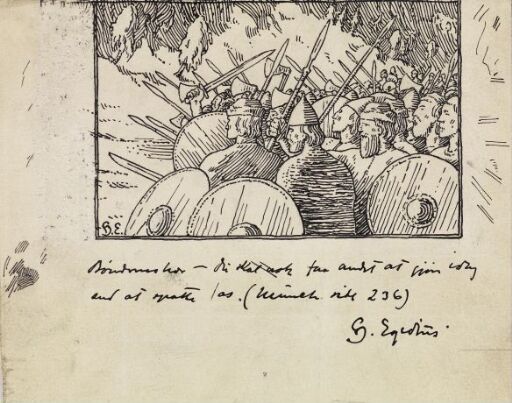 H.E.
– Di skal nok faa andet at gjøre idag
end at spotte os. (Munch. side 236)
H. Egedius.